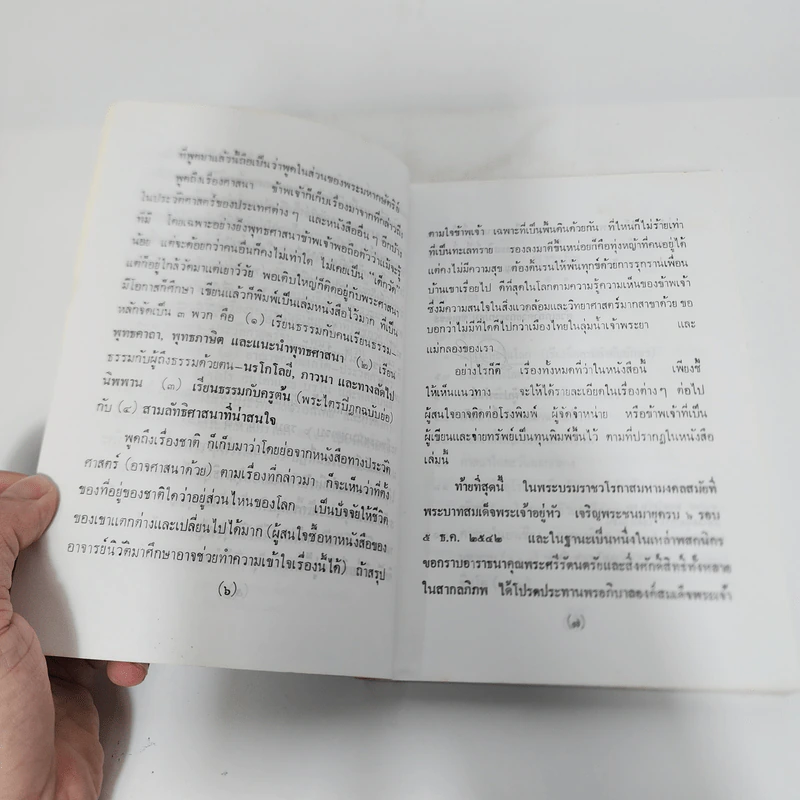 ที่พูดมาแล้วนี้ถือเป็นว่าพูดในส่วนของพระมหากษัตริย์
พูดถึงเรื่องศาสนา ข้าพเจ้าก็เก็บเรื่องมาจากที่กล่าวถึง
ในประวัติศาสตร์ของประเทศต่างๆ และหนังสืออื่นๆ อีกบ้าง
ที่มี โดยเฉพาะอย่างยิ่งพุทธศาสนาข้าพเจ้าพอถือตัวว่าแม้จะรู้
น้อย แต่จะด้อยกว่าคนอื่นก็คงไม่เท่าใด ไม่เคยเป็น "เด็กวัด"
แต่ก็อยู่ใกล้วัดมาแต่เยาว์วัย พอเติบใหญ่ก็ติดอยู่กับพระศาสนา
มีโอกาสก็ศึกษา เขียนแล้วก็พิมพ์เป็นเล่มหนังสือไว้มาก ที่เป็น
หลักจัดเป็น ๓ พวก คือ (๑) เรียนธรรมกับคนเรียนธรรม-
พุทธคาถา, พุทธภาษิต และแนะนำพุทธศาสนา (๒) เรียน
ธรรมกับผู้ถึงธรรมด้วยตน-นรโกโลยี, ภาวนา และทางลัดไป
นิพพาน (๓) เรียนธรรมกับครูต้น (พระไตรปิฎกฉบับย่อ)
กับ (๔) สามลัทธิศาสนาที่น่าสนใจ
พูดถึงเรื่องชาติ ก็เก็บมาว่าโดยย่อจากหนังสือทางประวัติ
ศาสตร์ (อาจศาสนาด้วย) ตามเรื่องที่กล่าวมา ก็จะเห็นว่าที่ตั้ง
ของที่อยู่ของชาติใดว่าอยู่ส่วนไหนของโลก เป็นปัจจัยให้ชีวิต
ของเขาแตกต่างและเปลี่ยนไปได้มาก (ผู้สนใจซื้อหาหนังสือของ
อาจารย์นิวัติมาศึกษาอาจช่วยทำความเข้าใจเรื่องนี้ได้) ถ้าสรุป
(๖)
ตามใจข้าพเจ้า เฉพาะที่เป็นพื้นดินด้วยกัน ที่ไหนก็ไม่ร้ายเท่า
ที่เป็นทะเลทราย รองลงมาดีขึ้นหน่อยก็คือทุ่งหญ้าที่คนอยู่ได้
แต่คงไม่มีความสุข ต้องดิ้นรนให้พ้นทุกข์ด้วยการรุกรานเพื่อน
บ้านเขาเรื่อยไป ดีที่สุดในโลกตามความรู้ความเห็นของข้าพเจ้า
ซึ่งมีความสนใจในสิ่งแวดล้อมและวิทยาศาสตร์มากสาขาด้วย ขอ
บอกว่าไม่มีที่ใดดีไปกว่าเมืองไทยในลุ่มน้ำเจ้าพระยา และ
แม่กลองของเรา
อย่างไรก็ดี เรื่องทั้งหมดที่ว่าในหนังสือนี้ เพียงชี้
ให้เห็นแนวทาง จะให้ได้รายละเอียดในเรื่องต่างๆ ต่อไป
ผู้สนใจอาจติดต่อโรงพิมพ์ ผู้จัดจำหน่าย หรือข้าพเจ้าที่เป็น
ผู้เขียนและจ่ายทรัพย์เป็นทุนพิมพ์ขึ้นไว้ ตามที่ปรากฏในหนังสือ
เล่มนี้
ท้ายที่สุดนี้ ในพระบรมราชวโรกาสมหามงคลสมัยที่
พระบาทสมเด็จพระเจ้าอยู่หัว เจริญพระชนมายุครบ ๖ รอบ
๕ ธ.ค. ๒๕๔๒ และในฐานะเป็นหนึ่งในเหล่าพสกนิกร
ขอกราบอาราธนาคุณพระศรีรัตนตรัยและสิ่งศักดิ์สิทธิ์ทั้งหลาย
ในสากลภิภพ ได้โปรดประทานพรอภิบาลองค์สมเด็จพระเจ้า
(๗)